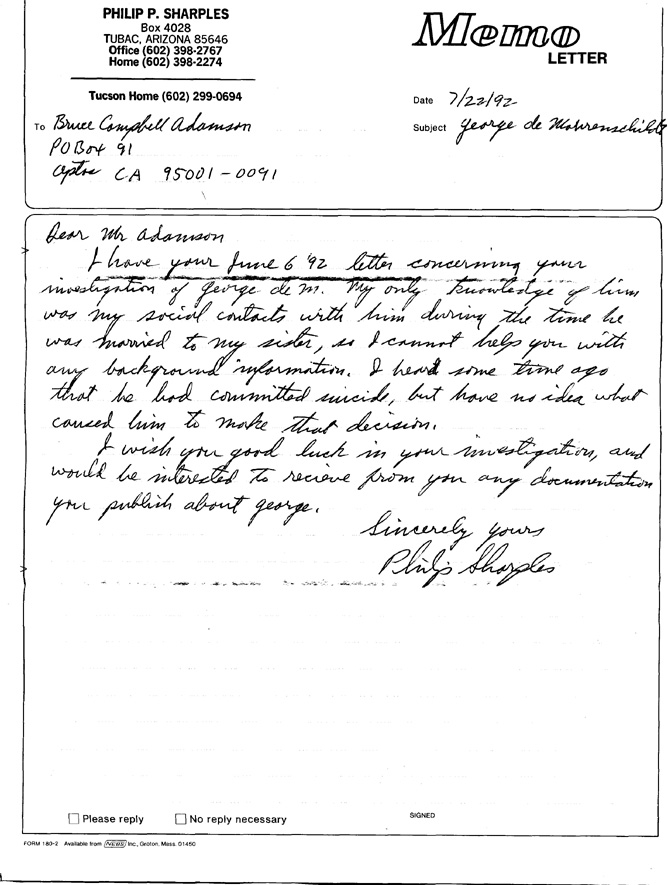 PHILIP P. SHARPLES
Box 4028
TUBAC, ARIZONA 85646
Office (602) 398-2767
Home (602) 398-2274
Tucson Home (602) 299-0694
Memo
LETTER
Date 7/22/92
Subject George de Mohrenschildt
To Bruce Campbell Adamson
PO Box 91
Aptos CA 95001-0091
Dear Mr Adamson
I have your June 6 '92 letter concerning your
investigation of George de M. My only knowledge of him
was my social contacts with him during the time he
was married to my sister, so I cannot help you with
any background information. I heard some time ago
that he had committed suicide, but have no idea what
caused him to make that decision.
I wish you good luck in your investigation, and
would be interested to recieve from you any documentation
you publish about George.
Sincerely yours
Philip Sharples
Please reply
No reply necessary
SIGNED
FORM 180-2 Available from NEBS Inc., Groton, Mass. 01450